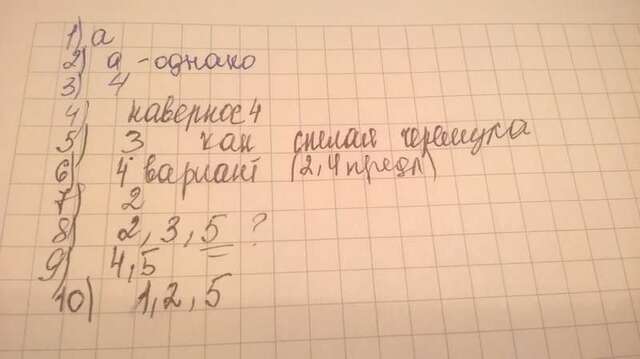 1) а
2) а - однако
3) 4
4) навернос 4
5) 3 как спелая черемука
6) 4 вариант (2,4 предл)
7) 2
8) 2, 3, 5 ?
9) 4,5
10) 1, 2, 5